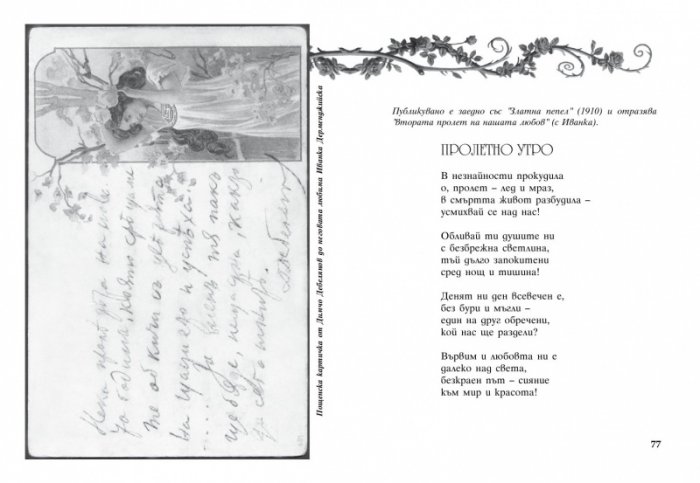 Публикувано е заедно със "Златна пепел" (1910) и отразява
"Втората пролет на нашата любов" (с Иванка).
ПРОЛЕТНО УТРО
В незнайности прокудила
о, пролет – лед и мраз,
в смъртта живот разбудила –
усмихвай се над нас!
Обливай ти душите ни
с безбрежна светлина,
тъй дълго запокитени
сред нощ и тишина!
Денят ни ден всевечен е,
без бури и мъгли –
един на друг обречени,
кой нас ще раздели?
Вървим и любовта ни е
далеко над света,
безкраен път – сияние
към мир и красота!
77
Пощенска картичка от Димчо Дебелянов до неговата любима Иванка Дерменджийска
Нека
година, която
те обкичи съ цветята
на щастието и успѣха.